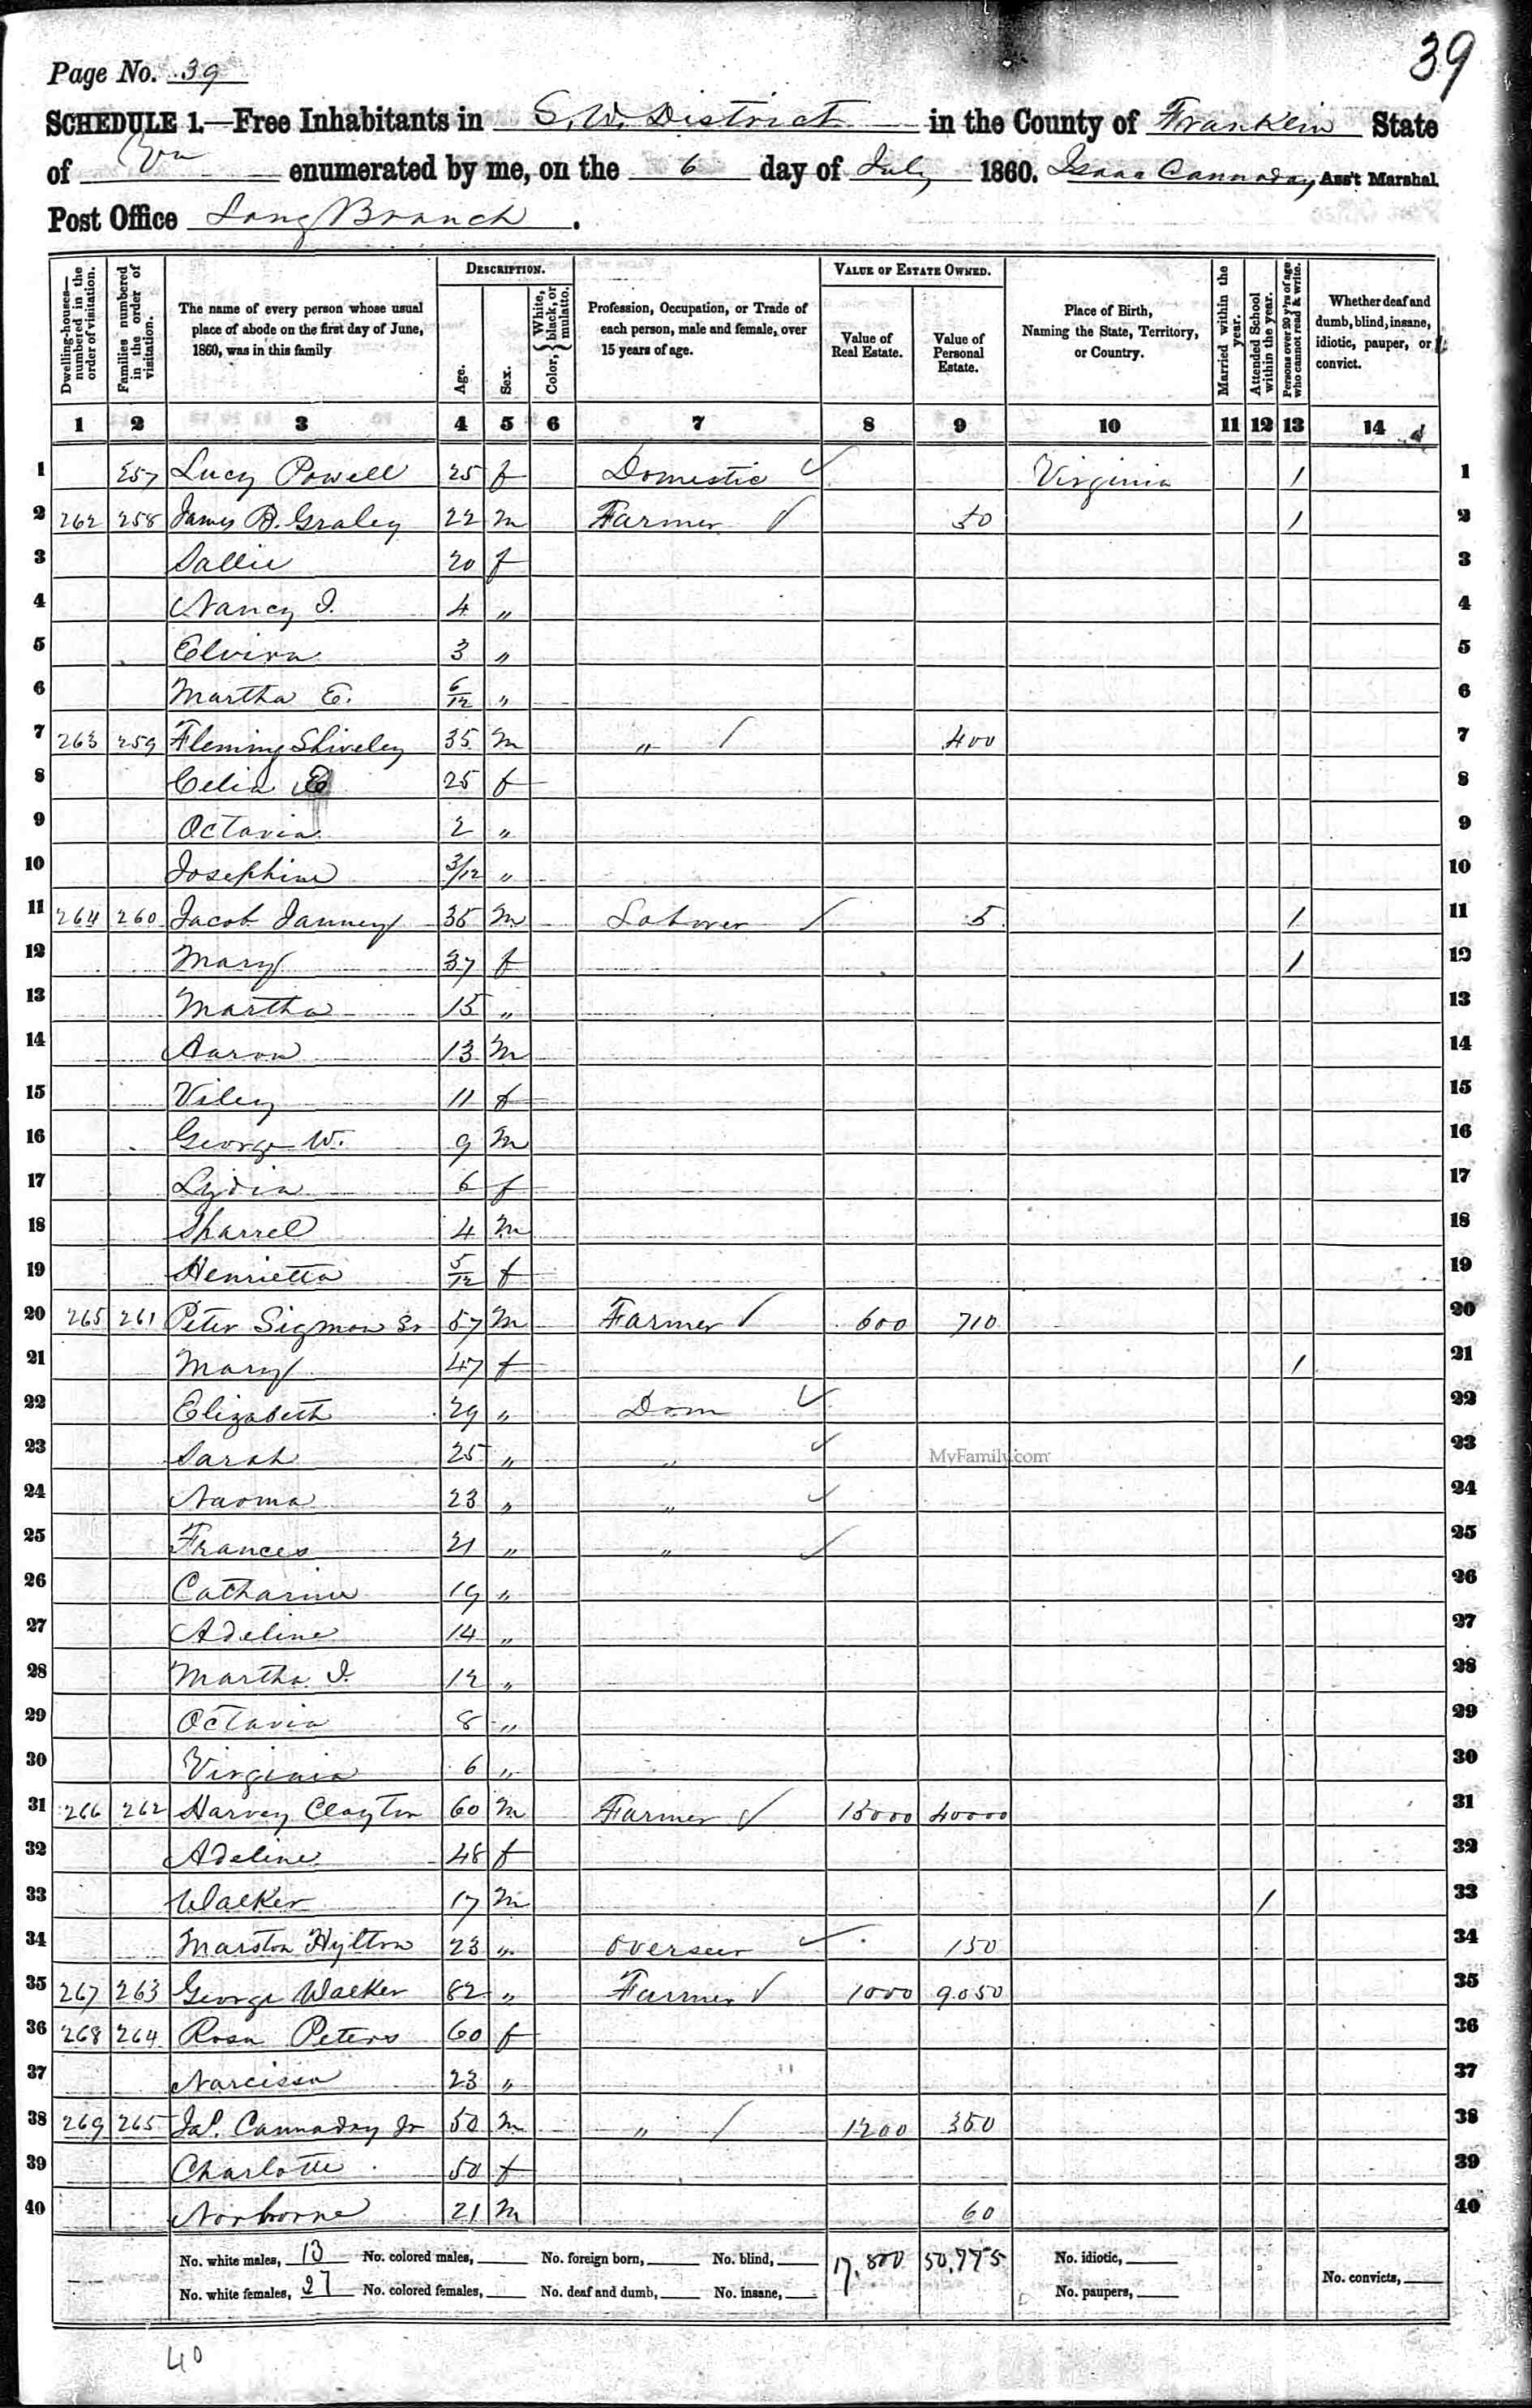 39
Page No. 39
SCHEDULE 1.—Free Inhabitants in S. W. District in the County of Franklin State
of Va enumerated by me, on the 6 day of July 1860. Isaac Cannaday Ass't Marshal.
Post Office Long Branch.
Dwelling-houses—numbered in the order of visitation.
Families numbered in the order of visitation.
The name of every person whose usual place of abode on the first day of June, 1860, was in this family
DESCRIPTION.
Age.
Sex.
Color, { White, black, or mulatto.
Profession, Occupation, or Trade of each person, male and female, over 15 years of age.
VALUE OF ESTATE OWNED.
Value of Real Estate.
Value of Personal Estate.
Place of Birth, Naming the State, Territory, or Country.
Married within the year.
Attended School within the year.
Persons over 20 y'rs of age who cannot read & write.
Whether deaf and dumb, blind, insane, idiotic, pauper, or convict.
1 2 3 4 5 6 7 8 9 10 11 12 13 14
1 257 Lucy Powell 25 f Domestic ✓ Virginia / 1
2 262 258 James B. Graley 22 m Farmer ✓ 50 / 2
3 Sallie 20 f 3
4 Nancy J. 4 " 4
5 Elvira 3 " 5
6 Martha E. 6/12 " 6
7 263 259 Fleming Shiveley 35 m " / 400 7
8 Celia E 25 f 8
9 Octavia 2 " 9
10 Josephine 3/12 " 10
11 264 260 Jacob Janney 35 m Laborer / 5 / 11
12 Mary 37 f / 12
13 Martha 15 " 13
14 Aaron 13 m 14
15 Viley 11 f 15
16 George W. 9 m 16
17 Lydia 6 f 17
18 Sharrel 4 m 18
19 Henrietta 5/12 f 19
20 265 261 Peter Sigmon Sr 57 m Farmer / 600 710 20
21 Mary 47 f / 21
22 Elizabeth 29 " Dom ✓ 22
23 Sarah 25 " " ✓ MyFamily.com 23
24 Naoma 23 " " ✓ 24
25 Frances 21 " " ✓ 25
26 Catharine 19 " 26
27 Adeline 14 " 27
28 Martha J. 12 " 28
29 Octavia 8 " 29
30 Virginia 6 " 30
31 266 262 Harvey Clayton 60 m Farmer ✓ 15000 40000 31
32 Adeline 48 f 32
33 Walker 17 m / 33
34 Marston Hylton 23 " Overseer ✓ 150 34
35 267 263 George Walker 82 " Farmer ✓ 1000 9050 35
36 268 264 Rosa Peters 60 f 36
37 Narcissa 23 " 37
38 269 265 Jas. Cannaday Jr 50 m " / 1200 350 38
39 Charlotte 50 f 39
40 Norborne 21 m 60 40
No. white males, 13 No. colored males, No. foreign born, No. blind, 17,800 50,775 No. idiotic,
No. white females, 27 No. colored females, No. deaf and dumb, No. insane, No. paupers, No. convicts,
40